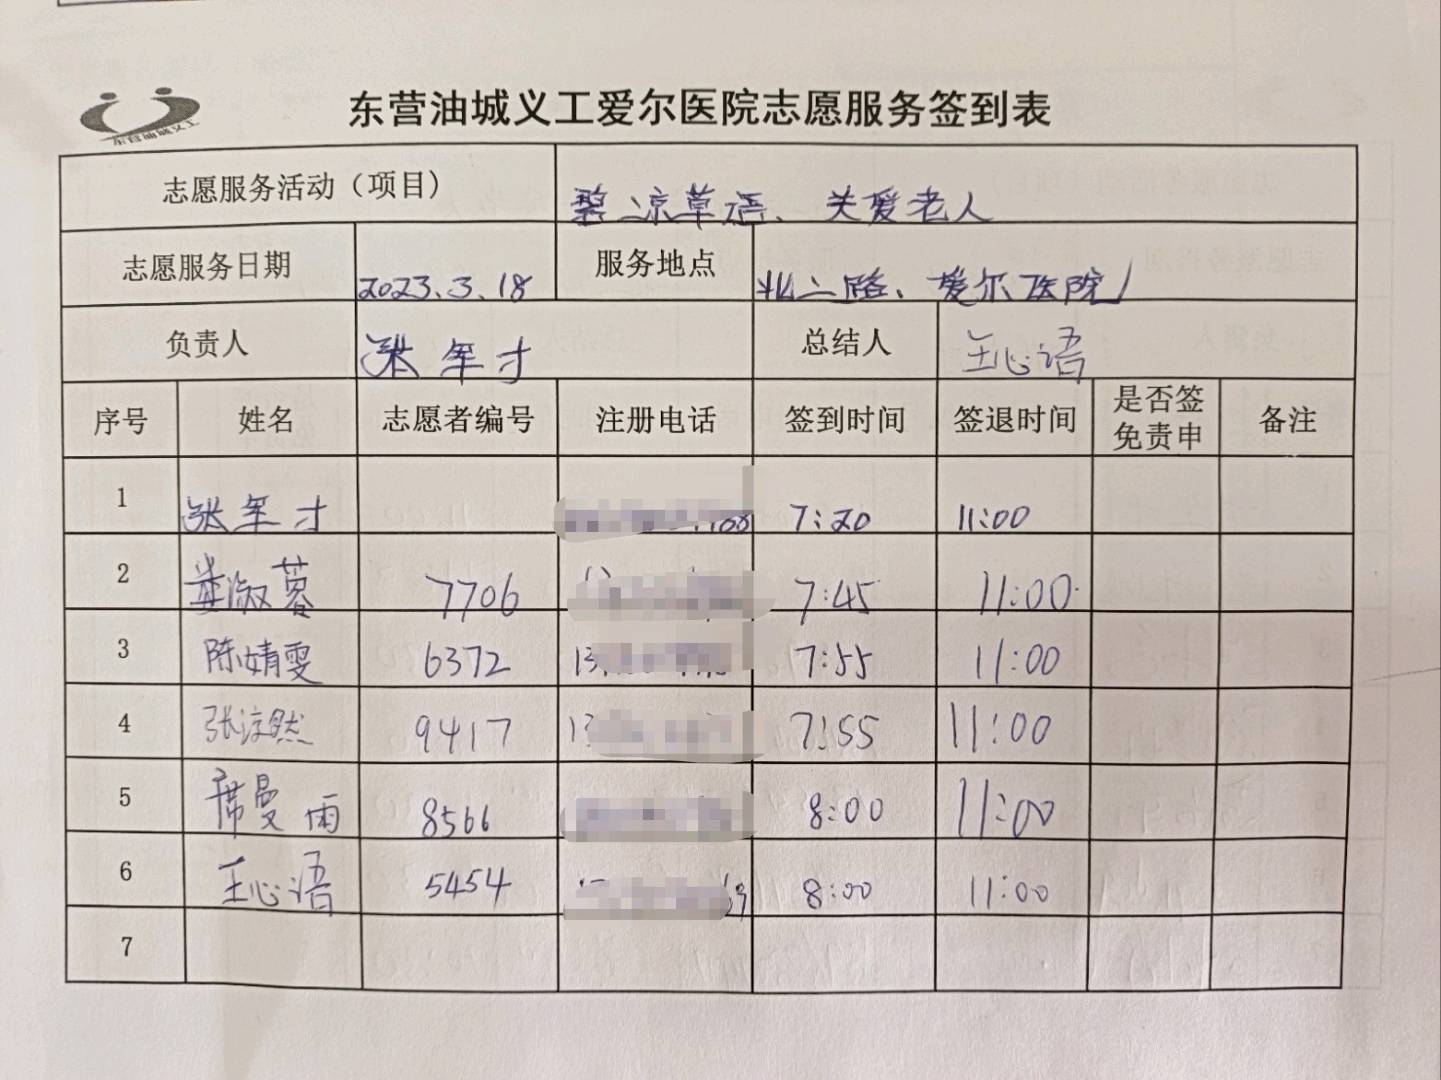 东营油城义工
东营油城义工爱尔医院志愿服务签到表
志愿服务活动（项目） 凉草语、关爱老人
志愿服务日期 2023.3.18 服务地点 北二路、爱尔医院
负责人 张军才 总结人 王心语
序号 姓名 志愿者编号 注册电话 签到时间 签退时间 是否签免责申 备注
1 张军才 7:20 11:00
2 娄淑蓉 7706 7:45 11:00
3 陈婧雯 6372 13 7:55 11:00
4 张汶然 9417 13 7:55 11:00
5 席曼雨 8566 8:00 11:00
6 王心语 5454 8:00 11:00
7